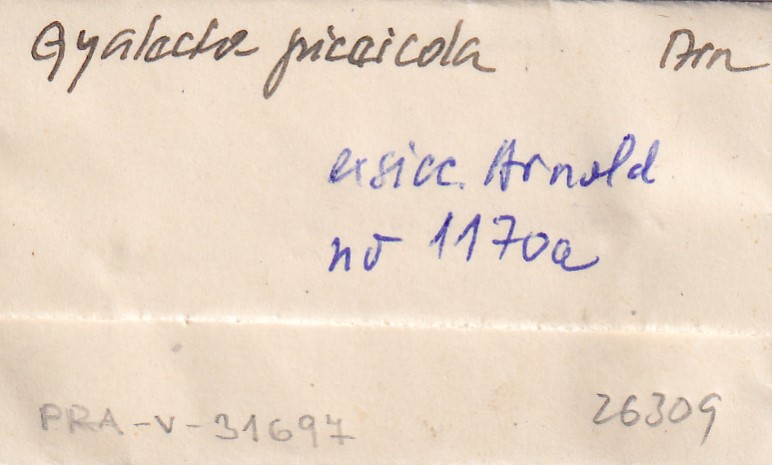 Gyalecta piceicola Arn
exsicc. Arnold
no 1170a
PRA-V-31697 26309